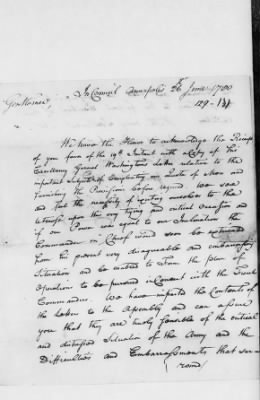 In Council Annapolis 26 June 1780
129-131
Gentlemen,
We have the Honor to acknowledge the Receipt
of your favor of the 19th Instant with a Copy of his
Excellency General Washington's Letter relative to the
important Subject of Compleating our Quota of Men and
furnishing the Provisions before required. We see
and feel the necessity of exerting ourselves to the
utmost upon this very trying and critical Occasion and
if our Power was equal to our Inclination the
Commander in Chief would soon be extricated
from his present very disagreeable and embarrassing
Situation and be enabled to form the plan of
Operation to be pursued in Concert with the French
Commanders. We have imparted the Contents of
the Letter to the Assembly and can assure
you that they are truly sensible of the critical
and distressed Situation of the Army and the
Difficulties and Embarrassments that sur-
round